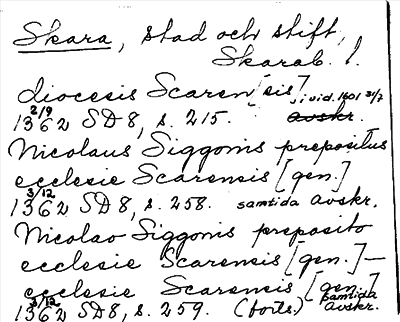 Skara, stad och stift,
Skarab. l.
diocesis Scaren[sis]
i vid. 1401 31/7
2/9
1362 SD8, s. 215. avskr.
Nicolaus Siggonis prepositus
ecclesie Scarensis [gen.]
3/12
1362 SD8, s. 258. samtida avskr.
Nicolao Siggonis preposito
ecclesie Scarensis [gen.] —
ecclesie Scarensis [gen.]
3/12 samtida
1362 SD8, s. 259. (forts.) avskr.